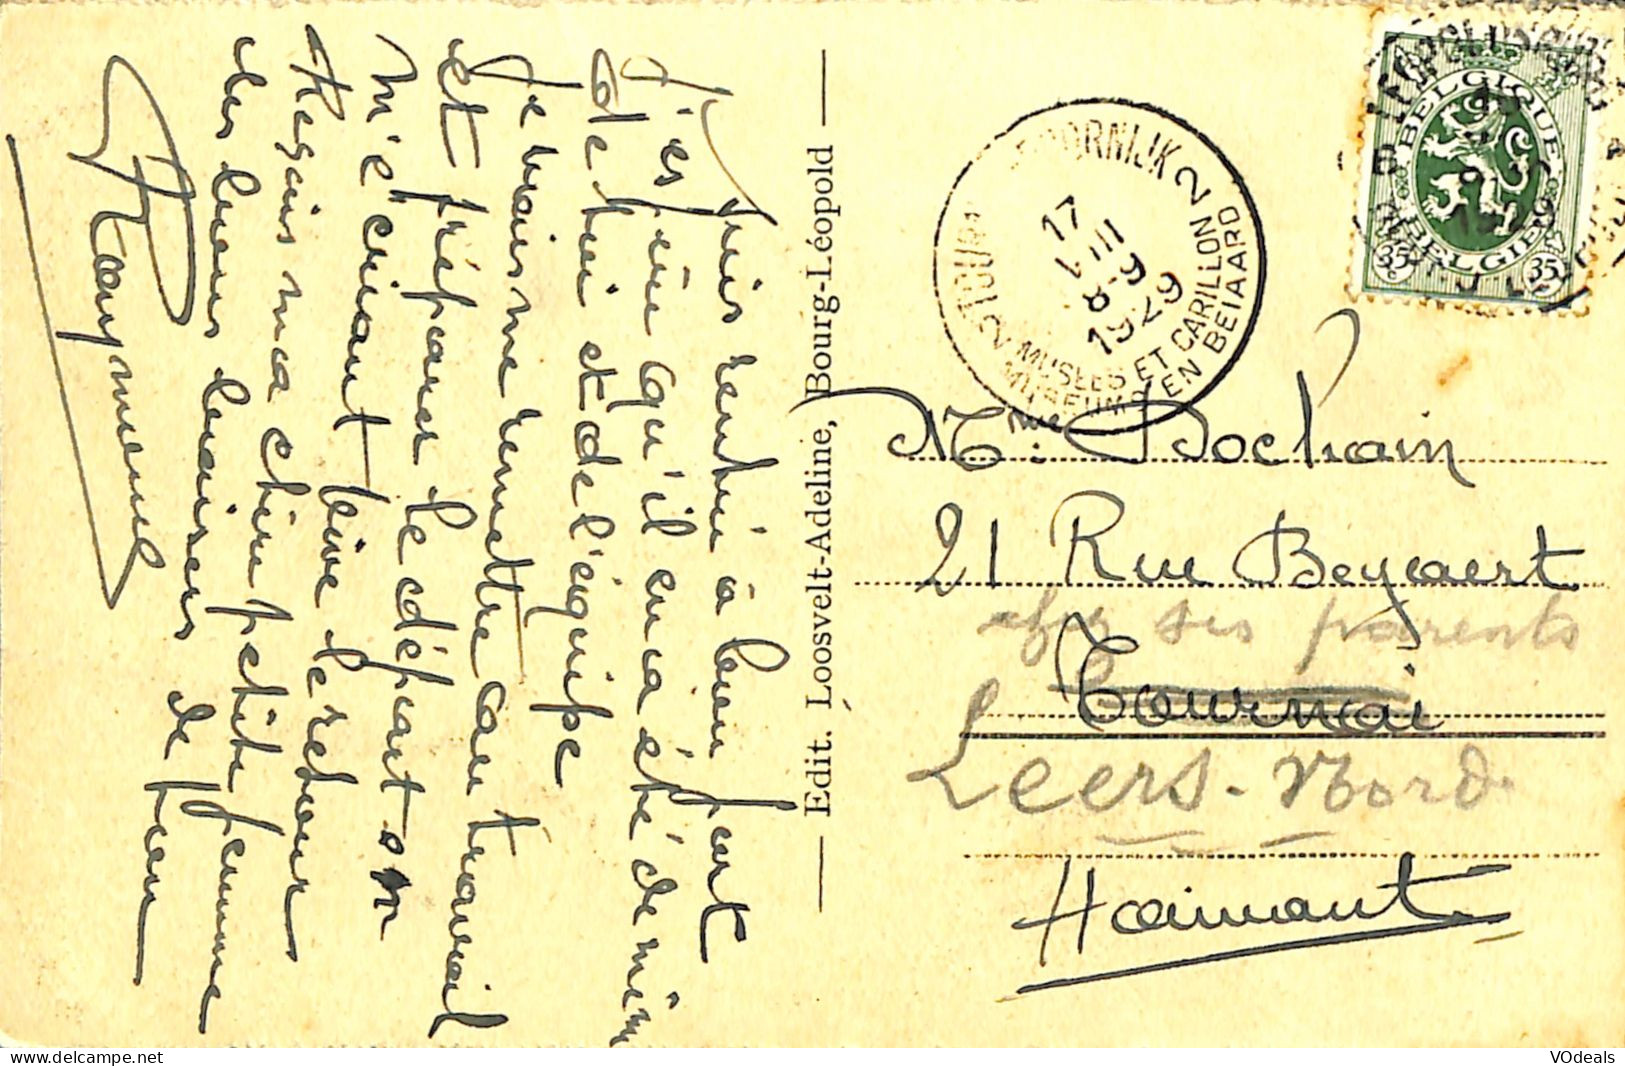 Suis rentré à bon port
J'espère qu'il en a été de même
de lui et de l'équipe
Je vais me remettre au travail
et préparer le départ on
m'écriant Vive le retour
Reçois ma chère petite femme
des bons baisers de ton
Raymond
Edit. Loosvelt-Adeline, Bourg-Léopold
BELGIQUE
BELGIE
35c
35c
DOORNIJK 2
TOURN
2
17
VIII
8-9
1929
MUSEES ET CARILLON
MUSEUMS EN BEIAARD
Mme: Dochain
21 Rue Beyaert
chez ses parents
Tournai
Leers-Nord
Hainaut
VOdeals